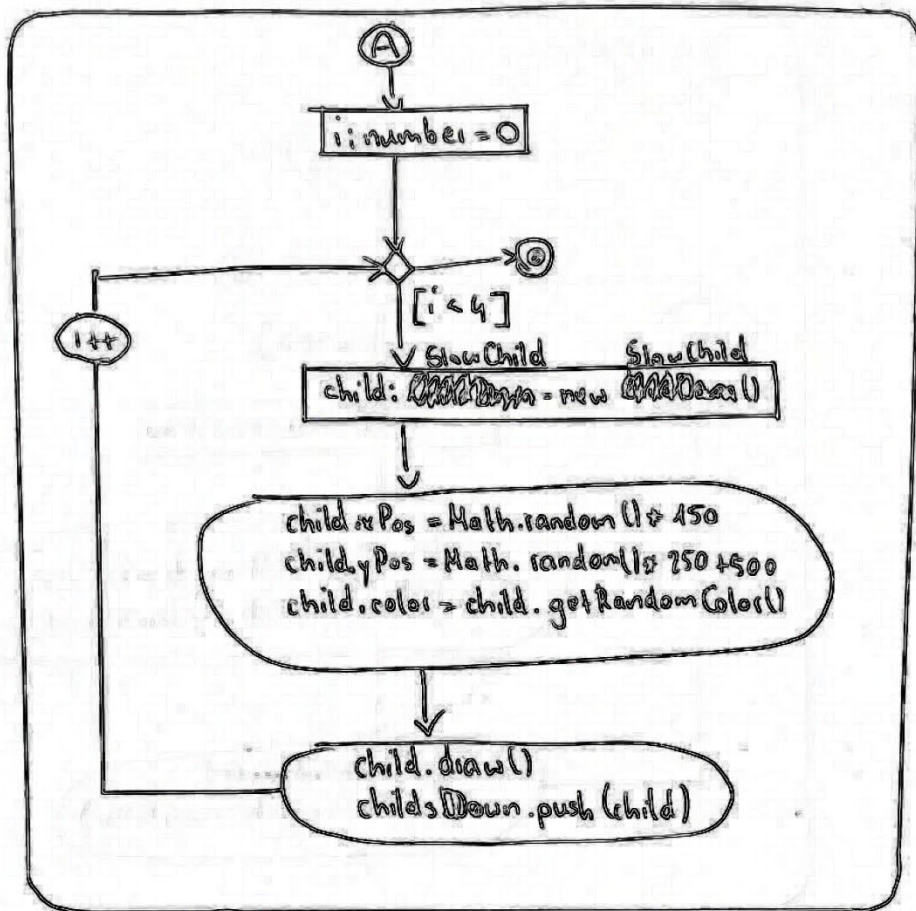 A
i: number = 0
[i < 4]
i++
SlowChild SlowChild
child: = new ()
child.xPos = Math.random() * 150
child.yPos = Math.random() * 250 + 500
child.color = child.getRandomColor()
child.draw()
childsDown.push(child)